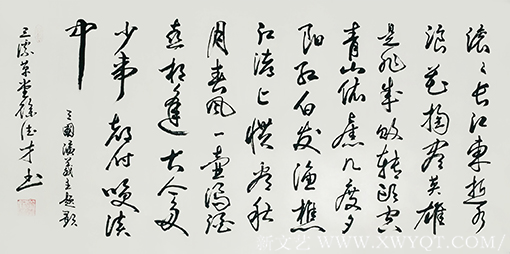 滚々长江東逝水
浪花掏尽英雄
是非成败转頭空
青山依舊几度夕
阳红白发渔樵
江渚上惯看秋
月春风一壶浊酒
喜相逢古今多
少事都付笑谈
中
三国演義主题歌
草堂徐德才书
新文艺 WWW.XWYQT.COM